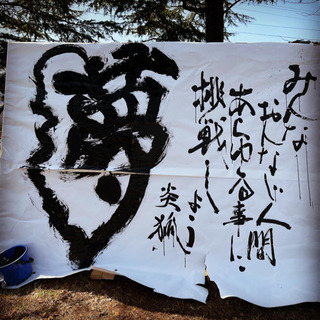 みんな
おんなじ人間
あらゆる事に
挑戦しよう
炎狐
夢